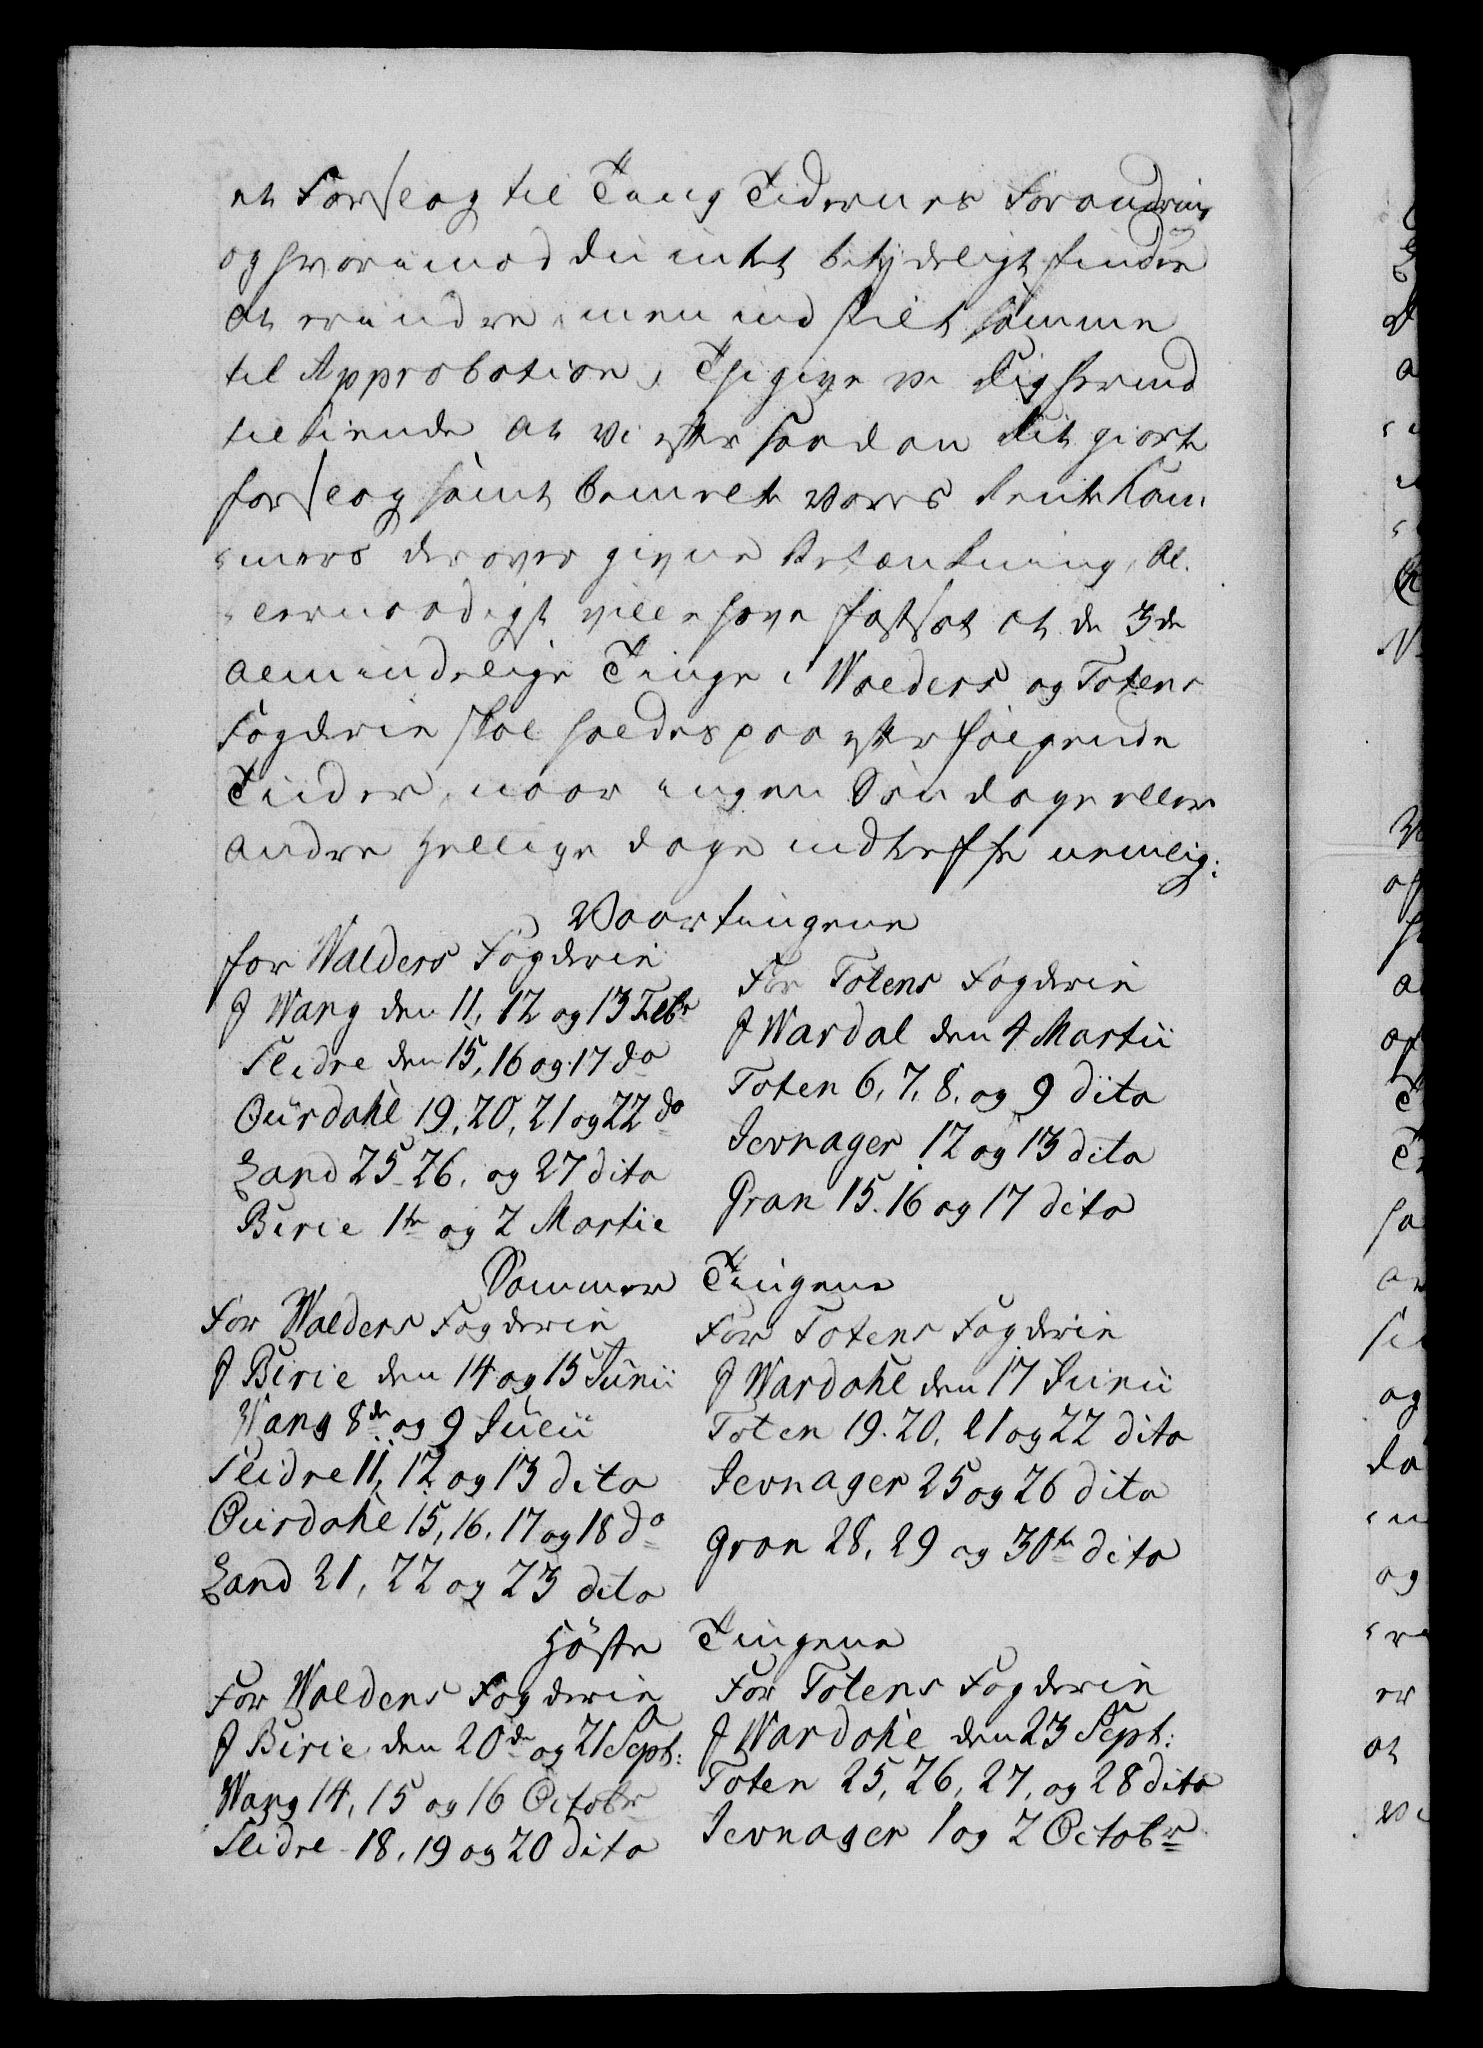 et Forslag til Ting Tidernes Forandring
og hvorimod du intet betydeligt finder
at erindre, men indstilt samme
til Approbation; Thi give vi dig hermed
tilkiende at vi efter saadan dit giorte
forslag samt bemelte vores Rente Kam-
mers derover givne Betænkning, Al-
lernaadigst ville have fastsat at de 3de
almindelige Tinge i Walders og Totens
Fogderie skal holdes paa efterfølgende
Tiider, naar ingen Søndage eller
andre Hellige dage indtreffe nemlig:
Vaartingene
for Walders Fogderie
J Wang den 11, 12 og 13 Febr
Slidre den 15, 16 og 17 do
Ourdahl 19, 20, 21 og 22 do
Land 25 26. og 27 dito
Birie 1te og 2 Martie
For Totens Fogderie
J Wardal den 4 Martii
Toten 6, 7, 8. og 9 dito
Jevnager 12 og 13 dito
Gran 15. 16 og 17 dito
Sommer Tingene
For Walders Fogderie
J Birie den 14 og 15 Junii
Wang 8de og 9 Julii
Slidre 11, 12 og 13 dito
Ourdahl 15, 16. 17 og 18 do
Land 21, 22 og 23 dito
For Totens Fogderie
J Wardahl den 17 Junii
Toten 19. 20, 21 og 22 dito
Jevnager 25 og 26 dito
Gran 28, 29 og 30te dito
Høste Tingene
For Walders Fogderie
J Birie den 20de og 21 Sept:
Wang 14, 15 og 16 Octobr
Slidre 18, 19 og 20 dito
For Totens Fogderie
J Wardahl den 23 Sept:
Toten 25, 26, 27, og 28 dito
Jevnager 1 og 2 Octobr